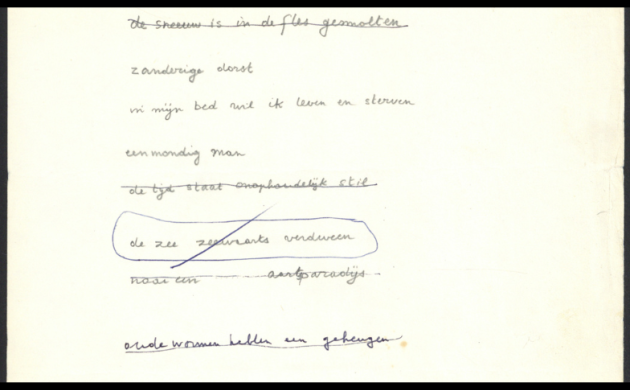 de sneeuw is in de fles gesmolten
zanderige dorst
in mijn bed wil ik leven en sterven
eenmondig man
de tijd staat onophoudelijk stil
de zee zeewaarts verdween
naar een aartsparadijs
oude wormen hebben een geheugen